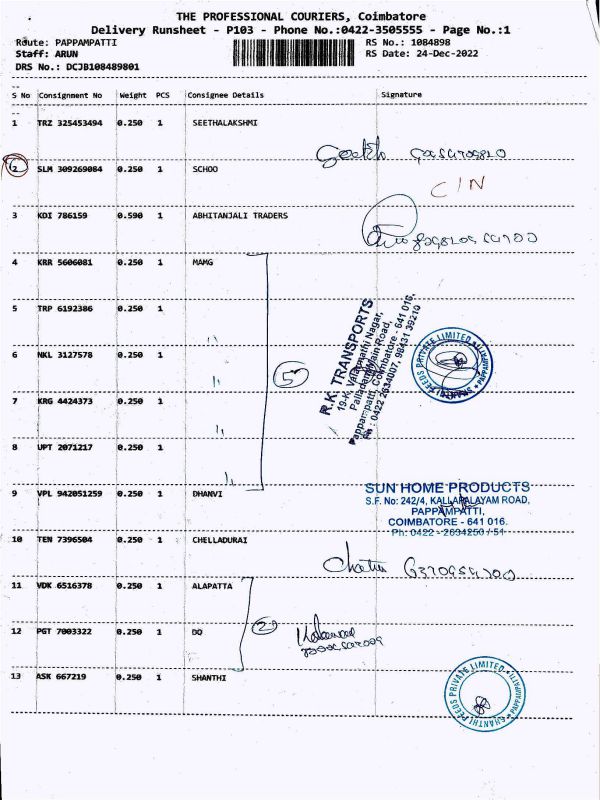 THE PROFESSIONAL COURIERS, Coimbatore
Delivery Runsheet - P103 - Phone No.:0422-3505555 - Page No.:1
Route: PAPPAMPATTI RS No.: 1084898
Staff: ARUN RS Date: 24-Dec-2022
DRS No.: DCJB108489801
S No Consignment No Weight PCS Consignee Details Signature
1 TRZ 325453494 0.250 1 SEETHALAKSHMI
2 SLM 309269084 0.250 1 SCHOO
C/N
3 KDI 786159 0.590 1 ABHITANJALI TRADERS
4 KRR 5606081 0.250 1 MAMG
5 TRP 6192386 0.250 1
6 NKL 3127578 0.250 1
7 KRG 4424373 0.250 1
8 UPT 2071217 0.250 1
5
R.K. TRANSPORTS
19-K, Valarmathi Nagar,
Palladam Main Road,
Pappampatti, Coimbatore - 641 016.
Ph : 0422 2634007, 98431 39210
9 VPL 942051259 0.250 1 DHANVI
SUN HOME PRODUCTS
S.F. No: 242/4, KALLAPALAYAM ROAD,
PAPPAMPATTI,
COIMBATORE - 641 016.
Ph: 0422 - 2634250 / 51
10 TEN 7396504 0.250 1 CHELLADURAI
11 VDK 6516378 0.250 1 ALAPATTA
12 PGT 7003322 0.250 1 DO
2
13 ASK 667219 0.250 1 SHANTHI
SHANTHI FEEDS PRIVATE LIMITED
PAPPAMPATTI